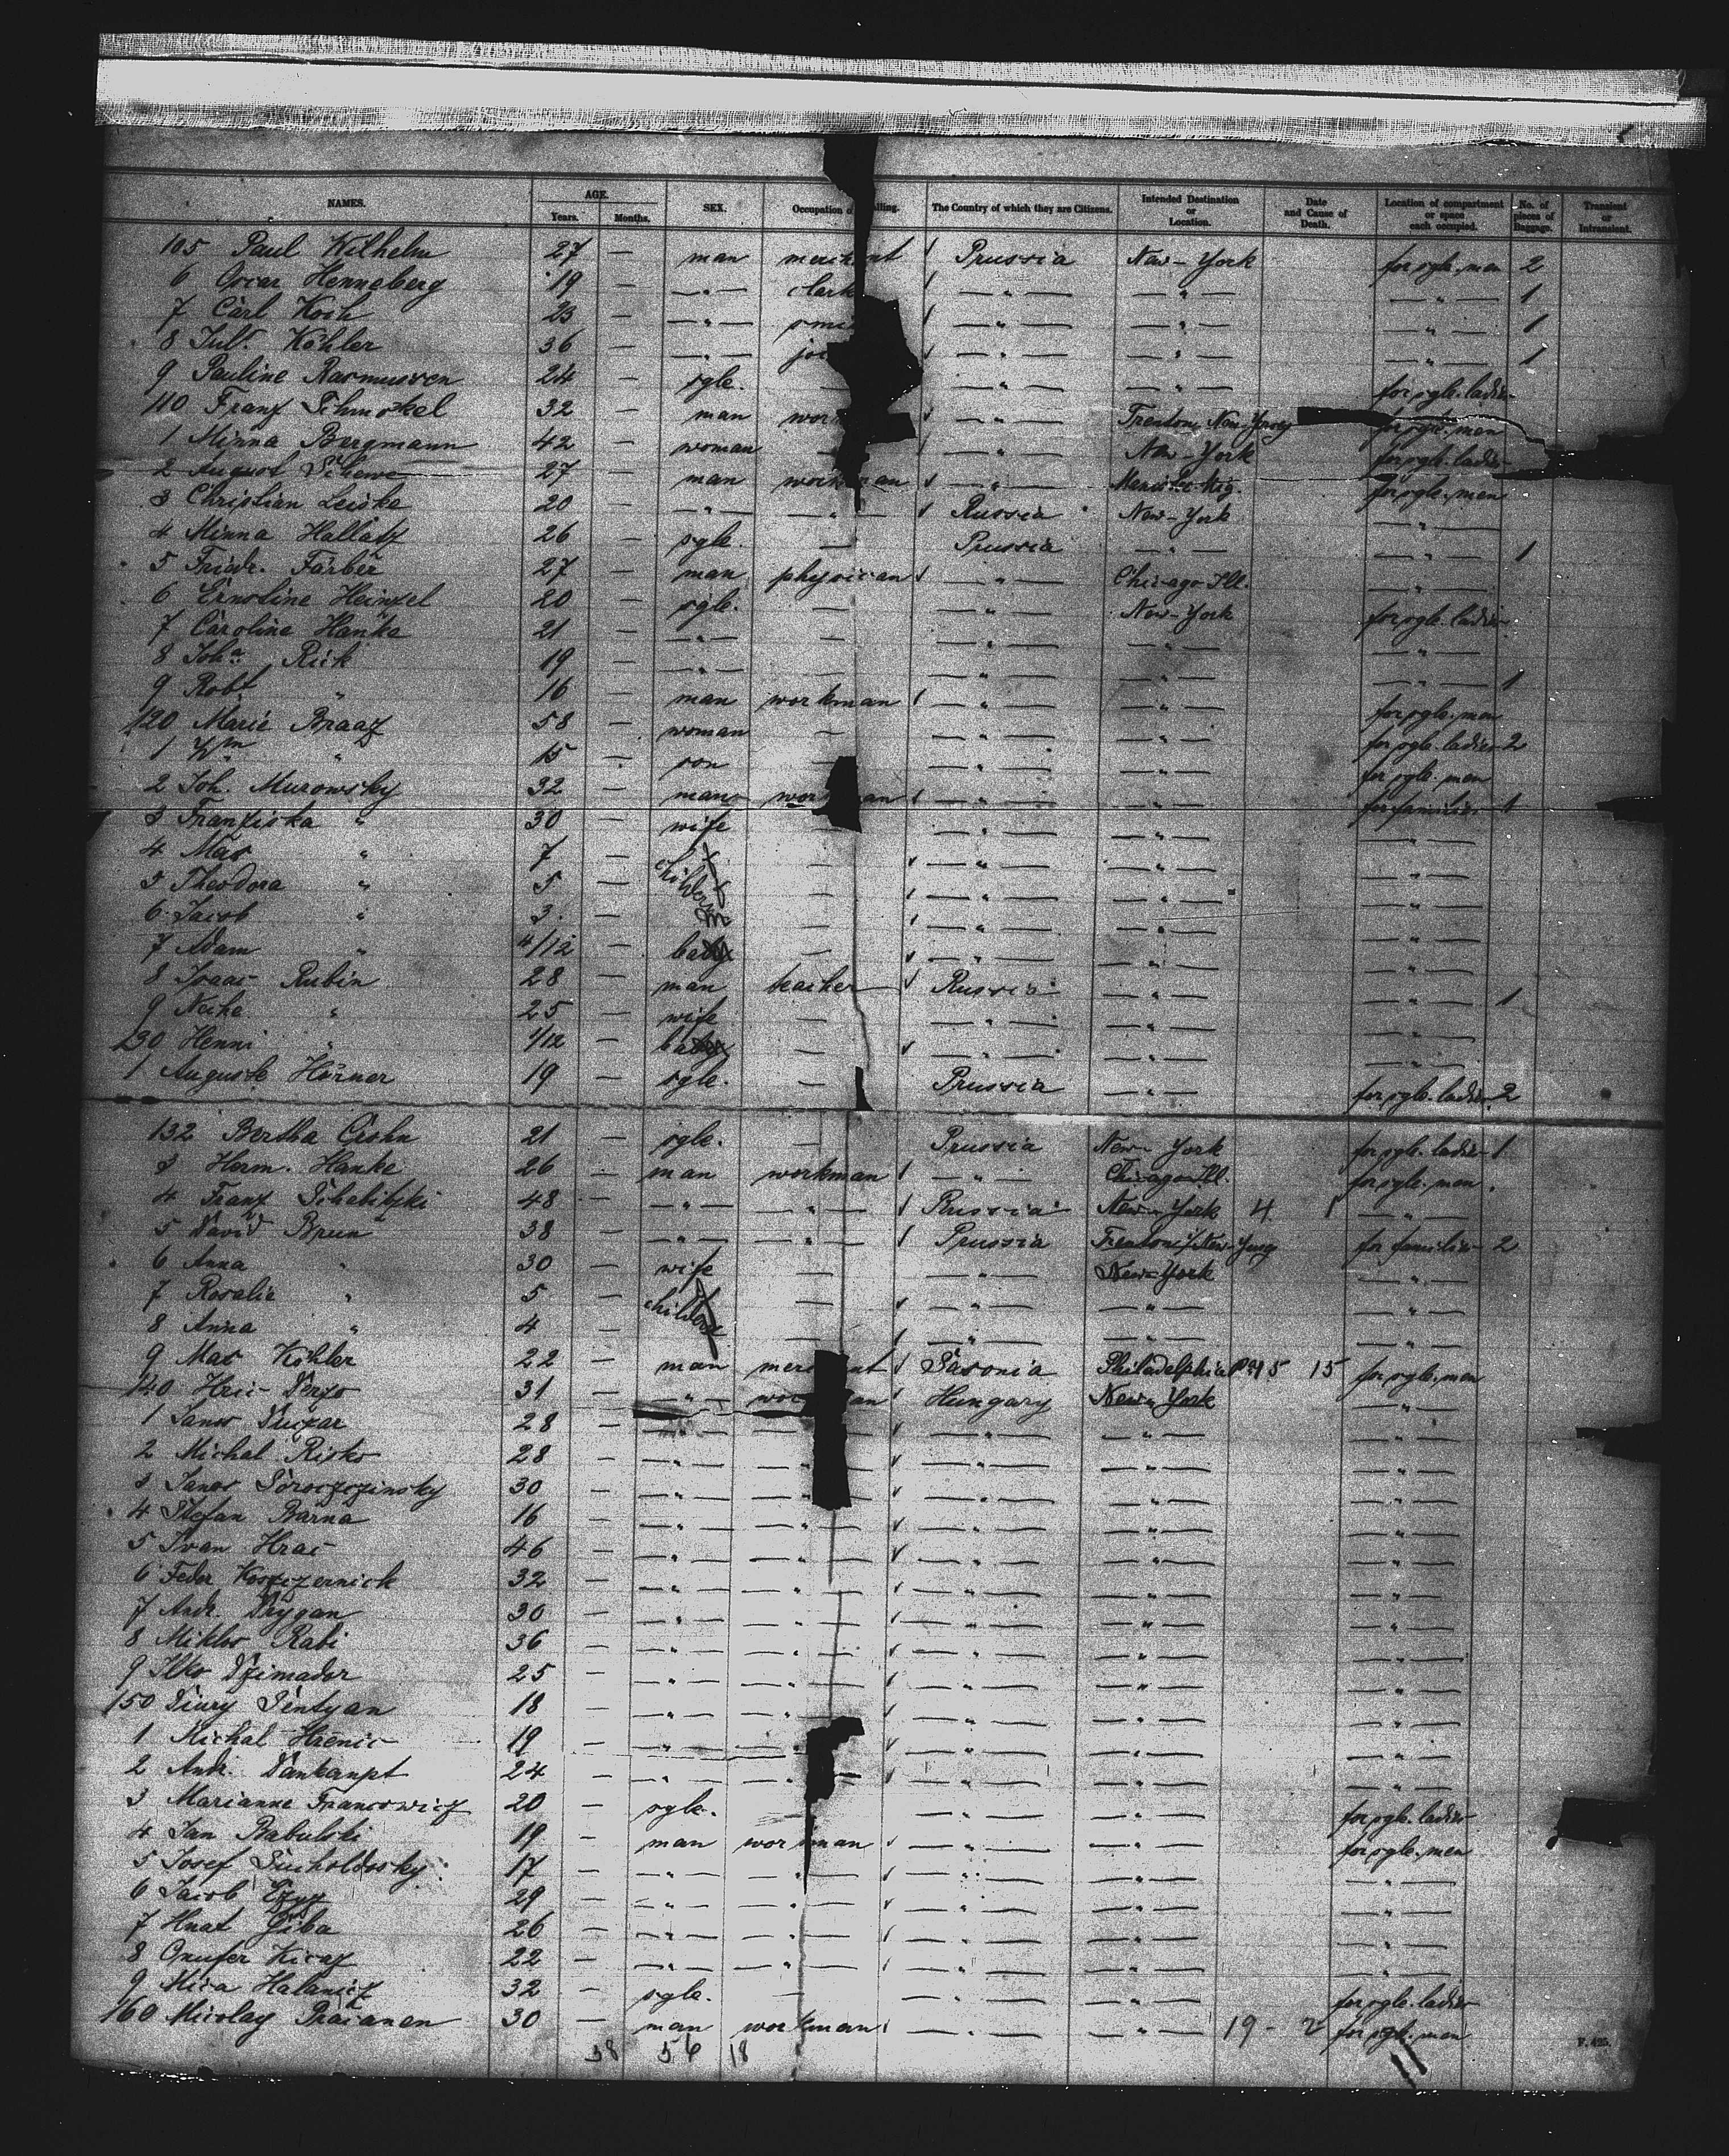 NAMES. AGE. Years. Months. SEX. Occupation o alling. The Country of which they are Citizens. Intended Destination or Location. Date and Cause of Death. Location of compartment or space each occupied. No. of pieces of Baggage. Transient or Intransient.
105 Paul Wilhelm 27 — man merch nt Prussia New-York for sgle. men 2
6 Oscar Henneberg 19 — —"— clark —"— —"— —"— 1
7 Carl Koch 23 — —"— smi —"— —"— —"— 1
8 Jul. Köhler 36 — —"— joi —"— —"— —"— 1
9 Pauline Rasmussen 24 — sgle. — —"— —"— for sgle. ladies
110 Franz Schmökel 32 — man work —"— Trenton New-Jersey for sgle. men
1 Minna Bergmann 42 — woman — —"— New-York for sgle. ladies
2 August Schewe 27 — man workman —"— Manistee Mig. for sgle. men
3 Christian Leiske 20 — —"— —"— Russia New-York —"—
4 Minna Hallatz 26 — sgle. — Prussia —"— —"— 1
5 Friedr. Färber 27 — man physician —"— Chicago Ill. —"—
6 Ernstine Heinzel 20 — sgle. — —"— New-York for sgle. ladies
7 Caroline Hanke 21 — —"— — —"— —"— —"—
8 Joha. Rick 19 — —"— — —"— —"— —"— 1
9 Robt. " 16 — man workman —"— —"— for sgle. men
120 Marie Braaz 58 — woman — —"— —"— for sgle. ladies 2
1 Wm " 15 — son — —"— —"— for sgle. men
2 Joh. Murowsky 32 — man wor an —"— —"— for families 1
3 Franziska " 30 — wife — —"— —"— —"—
4 Max " 7 — children — —"— —"— —"—
5 Theodora " 5 — — —"— —"— —"—
6 Jacob " 3 — — —"— —"— —"—
7 Adam " 4/12 — baby — —"— —"— —"—
8 Isaac Rubin 28 — man teacher Russia —"— —"— 1
9 Neche " 25 — wife — —"— —"— —"—
130 Henni " 1/12 — baby — —"— —"— —"—
1 Auguste Hörner 19 — sgle. — Prussia —"— for sgle. ladies 2
132 Bertha Cishn 21 — sgle. — Prussia New-York for sgle. ladies 1
3 Herm. Hanke 26 — man workman —"— Chicago Ill. for sgle. men
4 Franz Schalitzki 48 — —"— —"— Russia New-York 4 1 —"—
5 David Brun 38 — —"— —"— Prussia Trenton New-Jersey for families 2
6 Anna " 30 — wife — —"— New-York —"—
7 Rosalie " 5 — children — —"— —"— —"—
8 Anna " 4 — — —"— —"— —"—
9 Max Köhler 22 — man mer nt Saxonia Philadelphia 15 15 for sgle. men
140 Hric Derzo 31 — —"— wor an Hungary New-York —"—
1 Janos 28 — —"— —"— —"— —"— —"—
2 Michal Risko 28 — —"— —"— —"— —"— —"—
3 Janos 30 — —"— —"— —"— —"— —"—
4 Stefan Barna 16 — —"— —"— —"— —"— —"—
5 Ivan Hrac 46 — —"— —"— —"— —"— —"—
6 Feder 32 — —"— —"— —"— —"— —"—
7 Andr. Drygan 30 — —"— —"— —"— —"— —"—
8 Miklos Rabi 36 — —"— —"— —"— —"— —"—
9 Ilko Dzimador 25 — —"— —"— —"— —"— —"—
150 Diury Sentyan 18 — —"— —"— —"— —"— —"—
1 Michal Hrenic 19 — —"— —"— —"— —"— —"—
2 Andr. 24 — —"— —"— —"— —"— —"—
3 Marianne Francowicz 20 — sgle. — —"— —"— for sgle. ladies
4 Jan Babulski 19 — man workman —"— —"— for sgle. men
5 Josef Sucholdosky 17 — —"— —"— —"— —"— —"—
6 Jacob 29 — —"— —"— —"— —"— —"—
7 Hnat 26 — —"— —"— —"— —"— —"—
8 Onufer Kicaz 22 — —"— —"— —"— —"— —"—
9 Mica Halanicz 32 — sgle. — —"— —"— for sgle. ladies
160 Nicolay 30 — man workman —"— —"— 19 - 2 for sgle. men
58 56 18
F. 425.